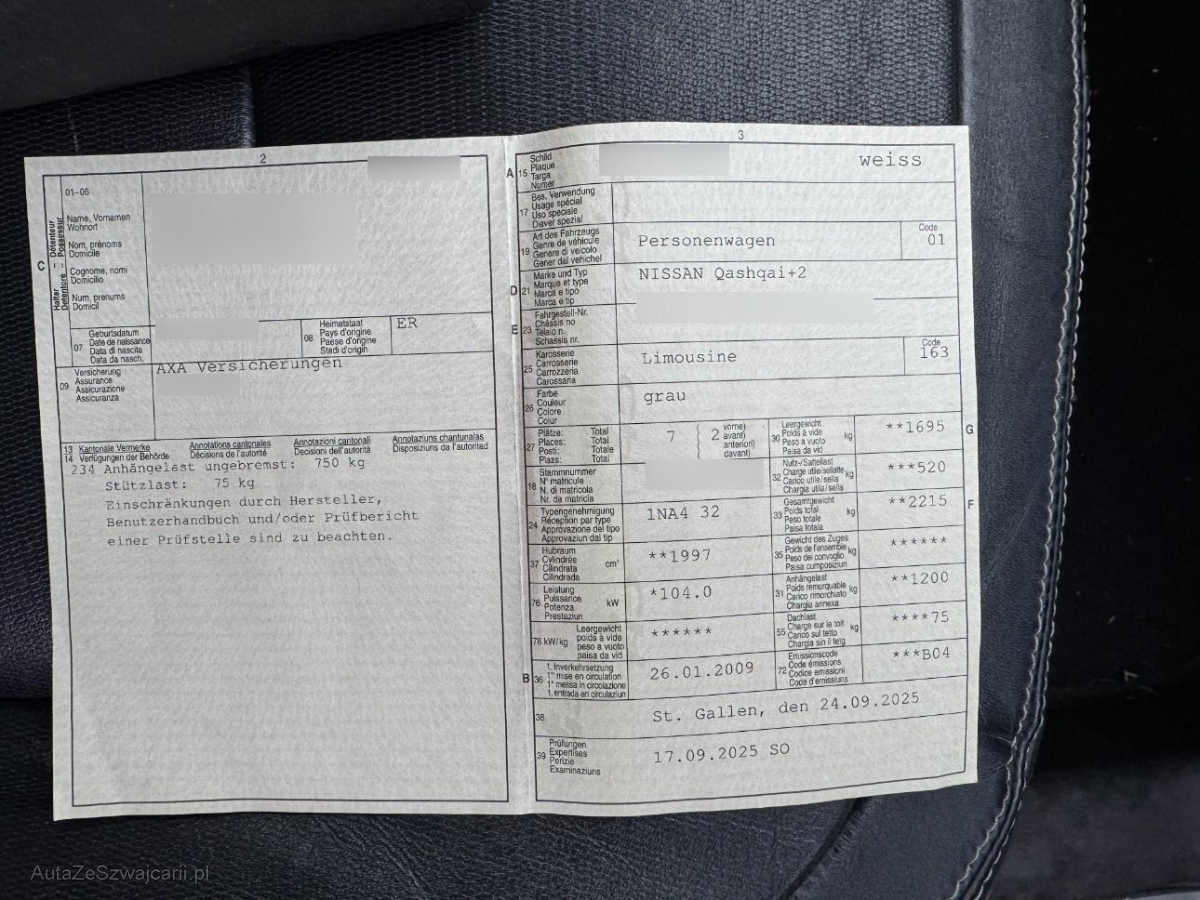 2
01-06
C
Halter Détenteur
Detentore Possessur
Name, Vornamen
Wohnort
Nom, prénoms
Domicile
Cognome, nomi
Domicilio
Num, prenums
Domicil
07
Geburtsdatum
Date de naissance
Data di nascita
Data da nasch.
08
Heimatstaat
Pays d'origine
Paese d'origine
Stadi d'origin
ER
09
Versicherung
Assurance
Assicurazione
Assicuranza
AXA Versicherungen
13 Kantonale Vermerke Annotations cantonales Annotazioni cantonali Annotaziuns chantunalas
14 Verfügungen der Behörde Décisions de l'autorité Decisioni dell'autorità Disposiziuns da l'autoritad
234 Anhängelast ungebremst: 750 kg
Stützlast: 75 kg
Einschränkungen durch Hersteller,
Benutzerhandbuch und/oder Prüfbericht
einer Prüfstelle sind zu beachten.
3
A 15
Schild
Plaque
Targa
Numer
weiss
17
Bes. Verwendung
Usage spécial
Uso speciale
Diever spezial
19
Art des Fahrzeugs
Genre de véhicule
Genere di veicolo
Gener dal vehichel
Personenwagen
Code
01
D 21
Marke und Typ
Marque et type
Marca e tipo
Marca e tip
NISSAN Qashqai+2
E 23
Fahrgestell-Nr.
Châssis no
Telaio n.
Schassis nr.
25
Karosserie
Carrosserie
Carrozzeria
Carossaria
Limousine
Code
163
26
Farbe
Couleur
Colore
Colur
grau
27
Plätze: Total
Places: Total
Posti: Totale
Plazs: Total
7
2
vorne)
avant)
anteriori)
davant)
30
Leergewicht
Poids à vide
Peso a vuoto
Paisa da vid
kg
**1695
G
18
Stammnummer
N° matricule
N. di matricola
Nr. da matricla
32
Nutz-/Sattellast
Charge utile/sellette
Carico utile/sella
Chargia utila/sella
kg
***520
24
Typengenehmigung
Réception par type
Approvazione del tipo
Approvaziun dal tip
1NA4 32
33
Gesamtgewicht
Poids total
Peso totale
Paisa totala
kg
**2215
F
37
Hubraum
Cylindrée
Cilindrata
Cilindrada
cm³
**1997
35
Gewicht des Zuges
Poids de l'ensemble
Peso del convoglio
Paisa cumposiziun
kg
******
76
Leistung
Puissance
Potenza
Prestaziun
kW
*104.0
31
Anhängelast
Poids remorquable
Carico rimorchiato
Chargia annexa
kg
**1200
78 kW/kg
Leergewicht
poids à vide
peso a vuoto
paisa da vid
******
55
Dachlast
Charge sur le toit
Carico sul tetto
Chargia sin il tetg
kg
****75
B 36
1. Inverkehrsetzung
1re mise en circulation
1a messa in circolazione
1. entrada en circulaziun
26.01.2009
72
Emissionscode
Code émissions
Codice emissioni
Code d'emissiuns
***B04
38
St. Gallen, den 24.09.2025
39
Prüfungen
Expertises
Perizie
Examinaziuns
17.09.2025 SO
AutaZeSzwajcarii.pl